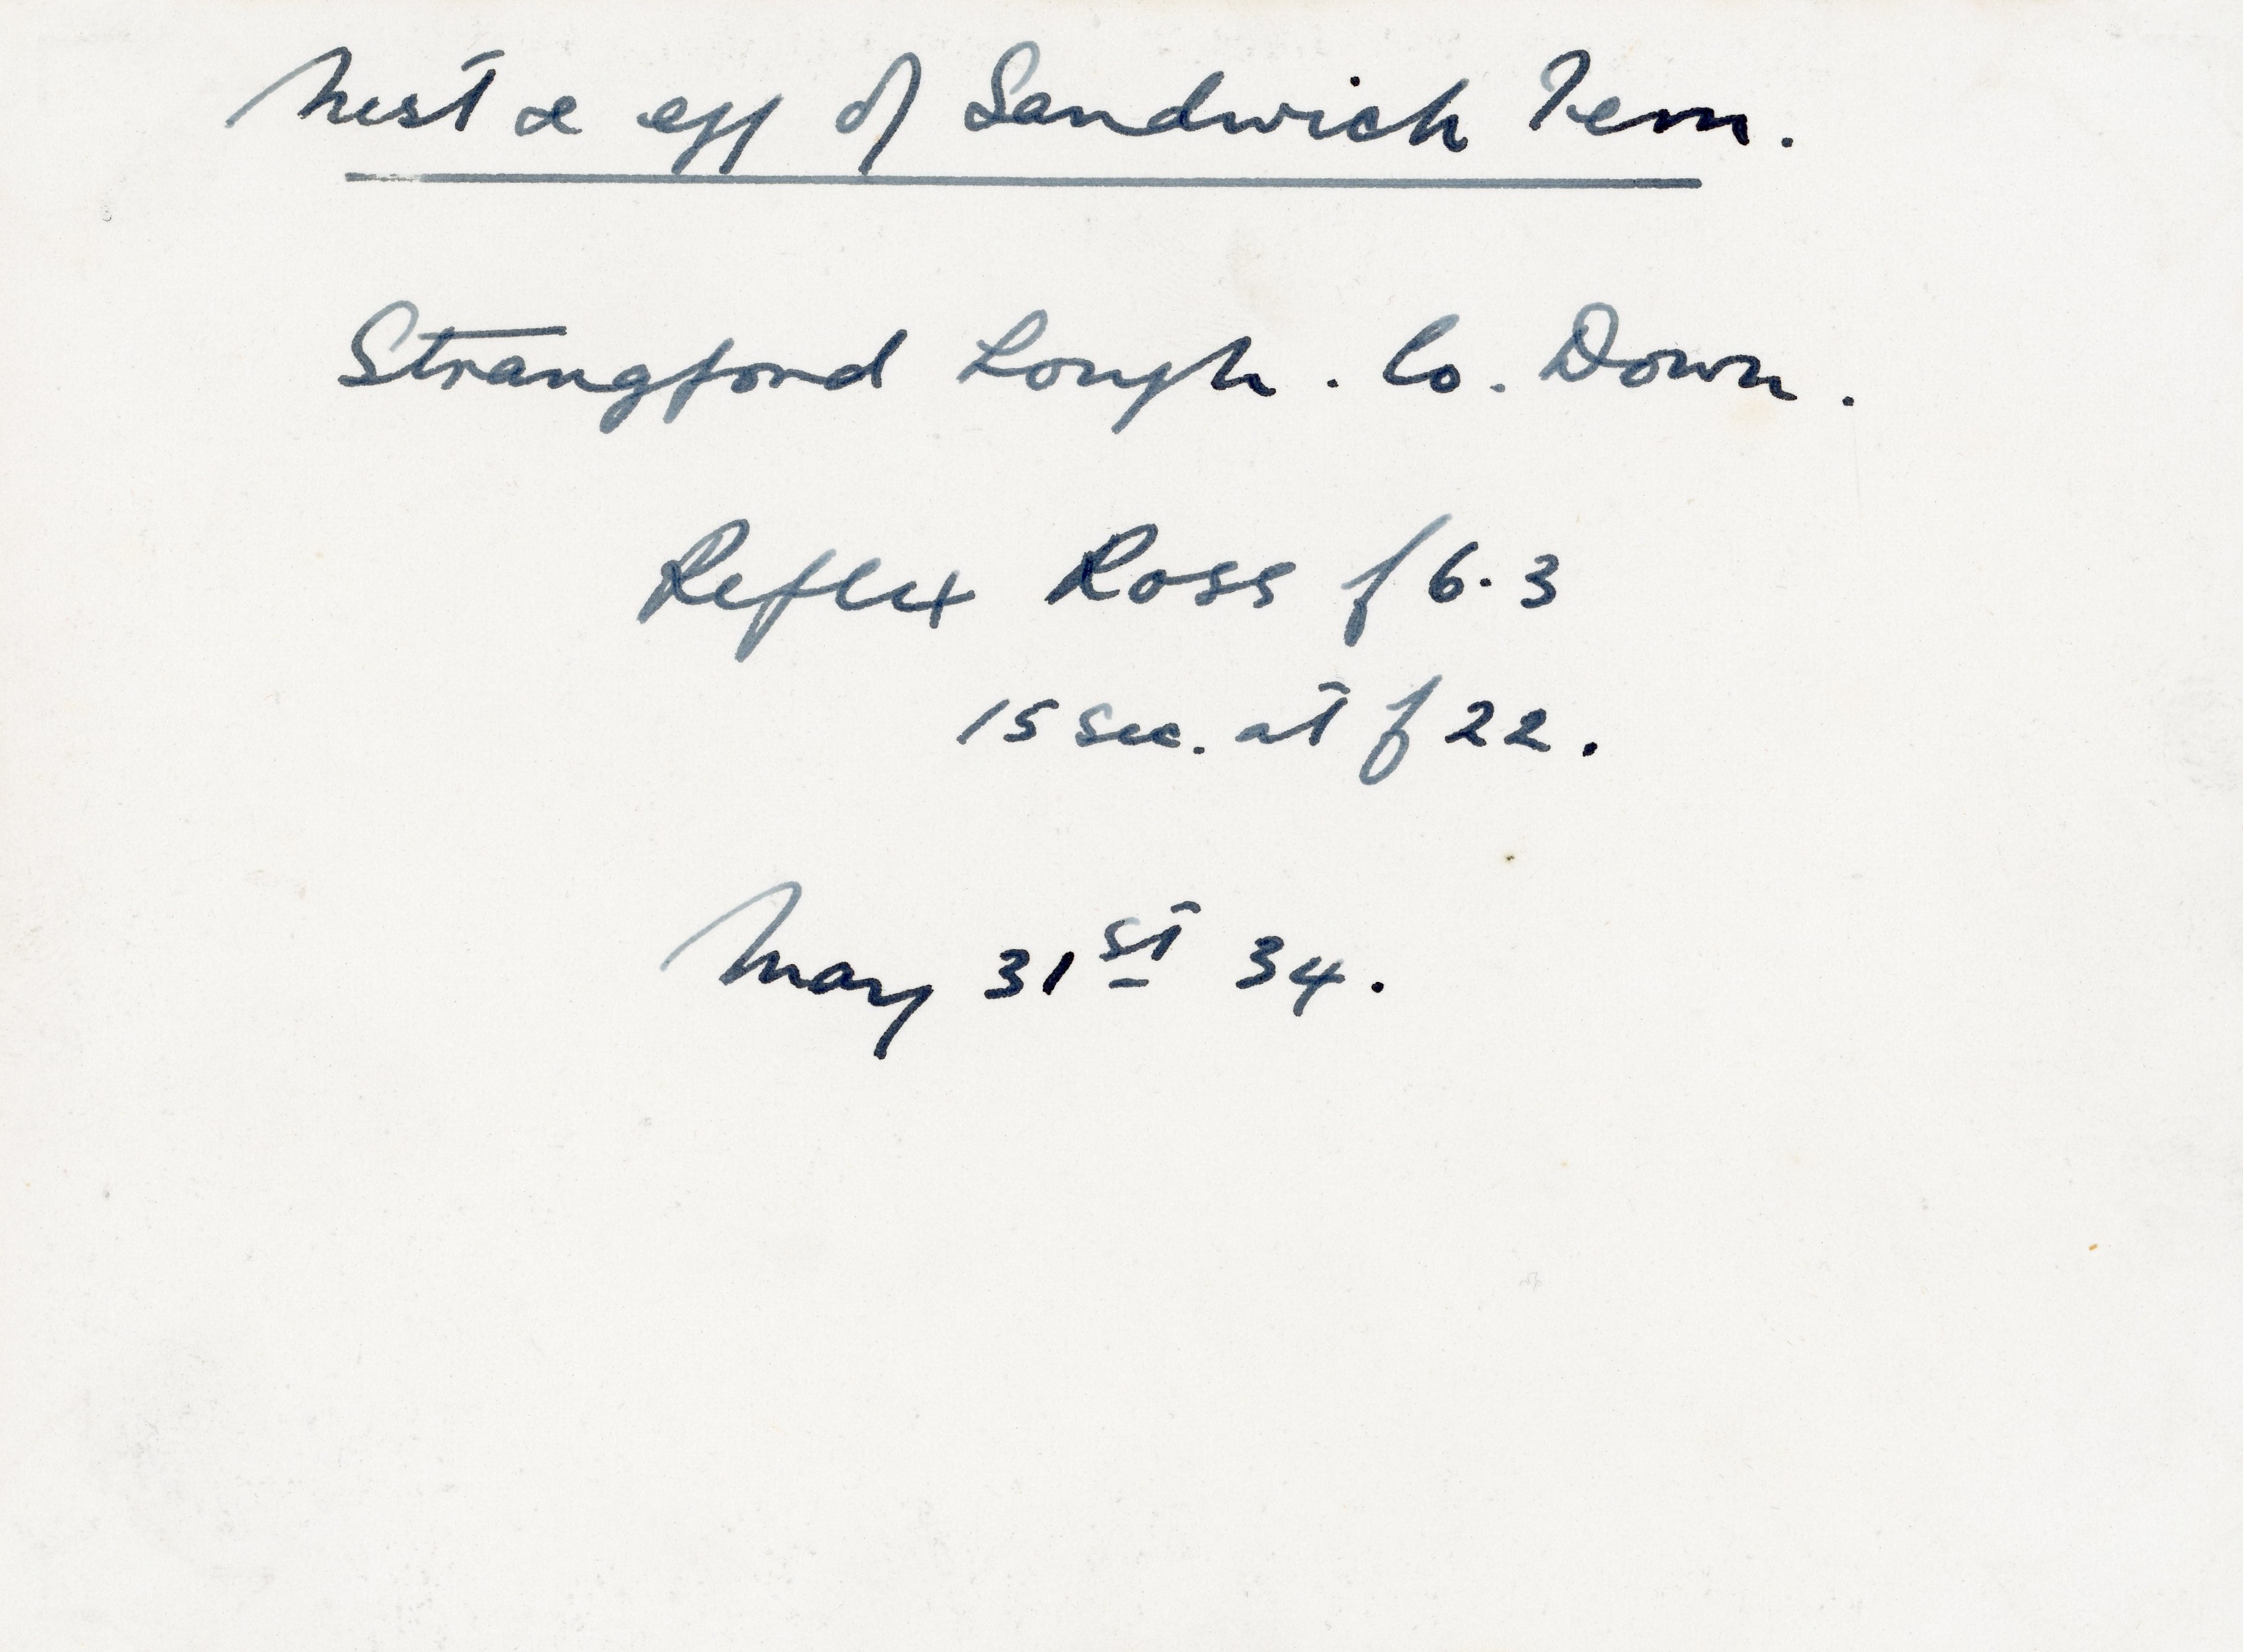 Nest & egg of Sandwich Tern.
Strangford Lough. Co. Down.
Reflex Ross f 6.3
15 sec. at f 22.
May 31st 34.